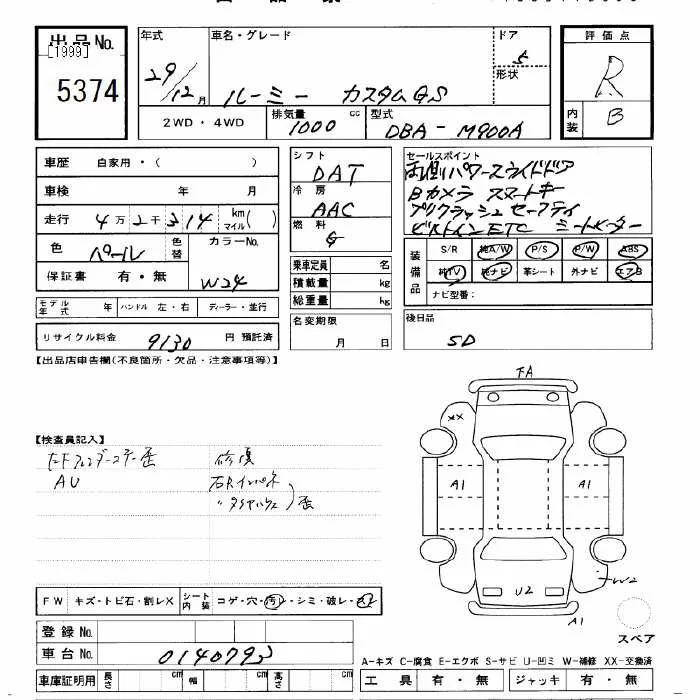 出品No.
[1999]
5374
年式
29/12月
車名・グレード
ルーミー カスタムGS
ドア
5
形状
評価点
R
内装
B
2WD・4WD
排気量
1000
cc
型式
DBA-M900A
車歴 自家用・( )
車検 年 月
走行 4万2千314 km マイル( )
色
パール
色替
カラーNo.
W24
保証書 有・無
モデル年式 年
ハンドル 左・右
ディーラー・並行
リサイクル料金 9130 円 預託済
シフト
DAT
冷房
AAC
燃料
G
乗車定員 名
積載量 kg
総重量 kg
名変期限
月 日
セールスポイント
両側パワースライドドア
Bカメラ スマートキー
プリクラッシュセーフティ
ビルトインETC シートヒーター
装備品
S/R
純A/W
P/S
P/W
ABS
純TV
純ナビ
革シート
外ナビ
エアB
ナビ型番:
後日品
SD
【出品店申告欄(不良箇所・欠品・注意事項等)】
【検査員記入】
修復
AU
右Rインパネ
歪
FA
XX
A1
A1
W2
U2
A1
スペア
FW キズ・トビ石・割レX
シート内装 コゲ・穴・汚レ・シミ・破レ・スレ
登録No.
車台No.
車庫証明用
長さ cm
幅 cm
高さ cm
A-キズ C-腐食 E-エクボ S-サビ U-凹ミ W-補修 XX-交換済
工具 有・無
ジャッキ 有・無